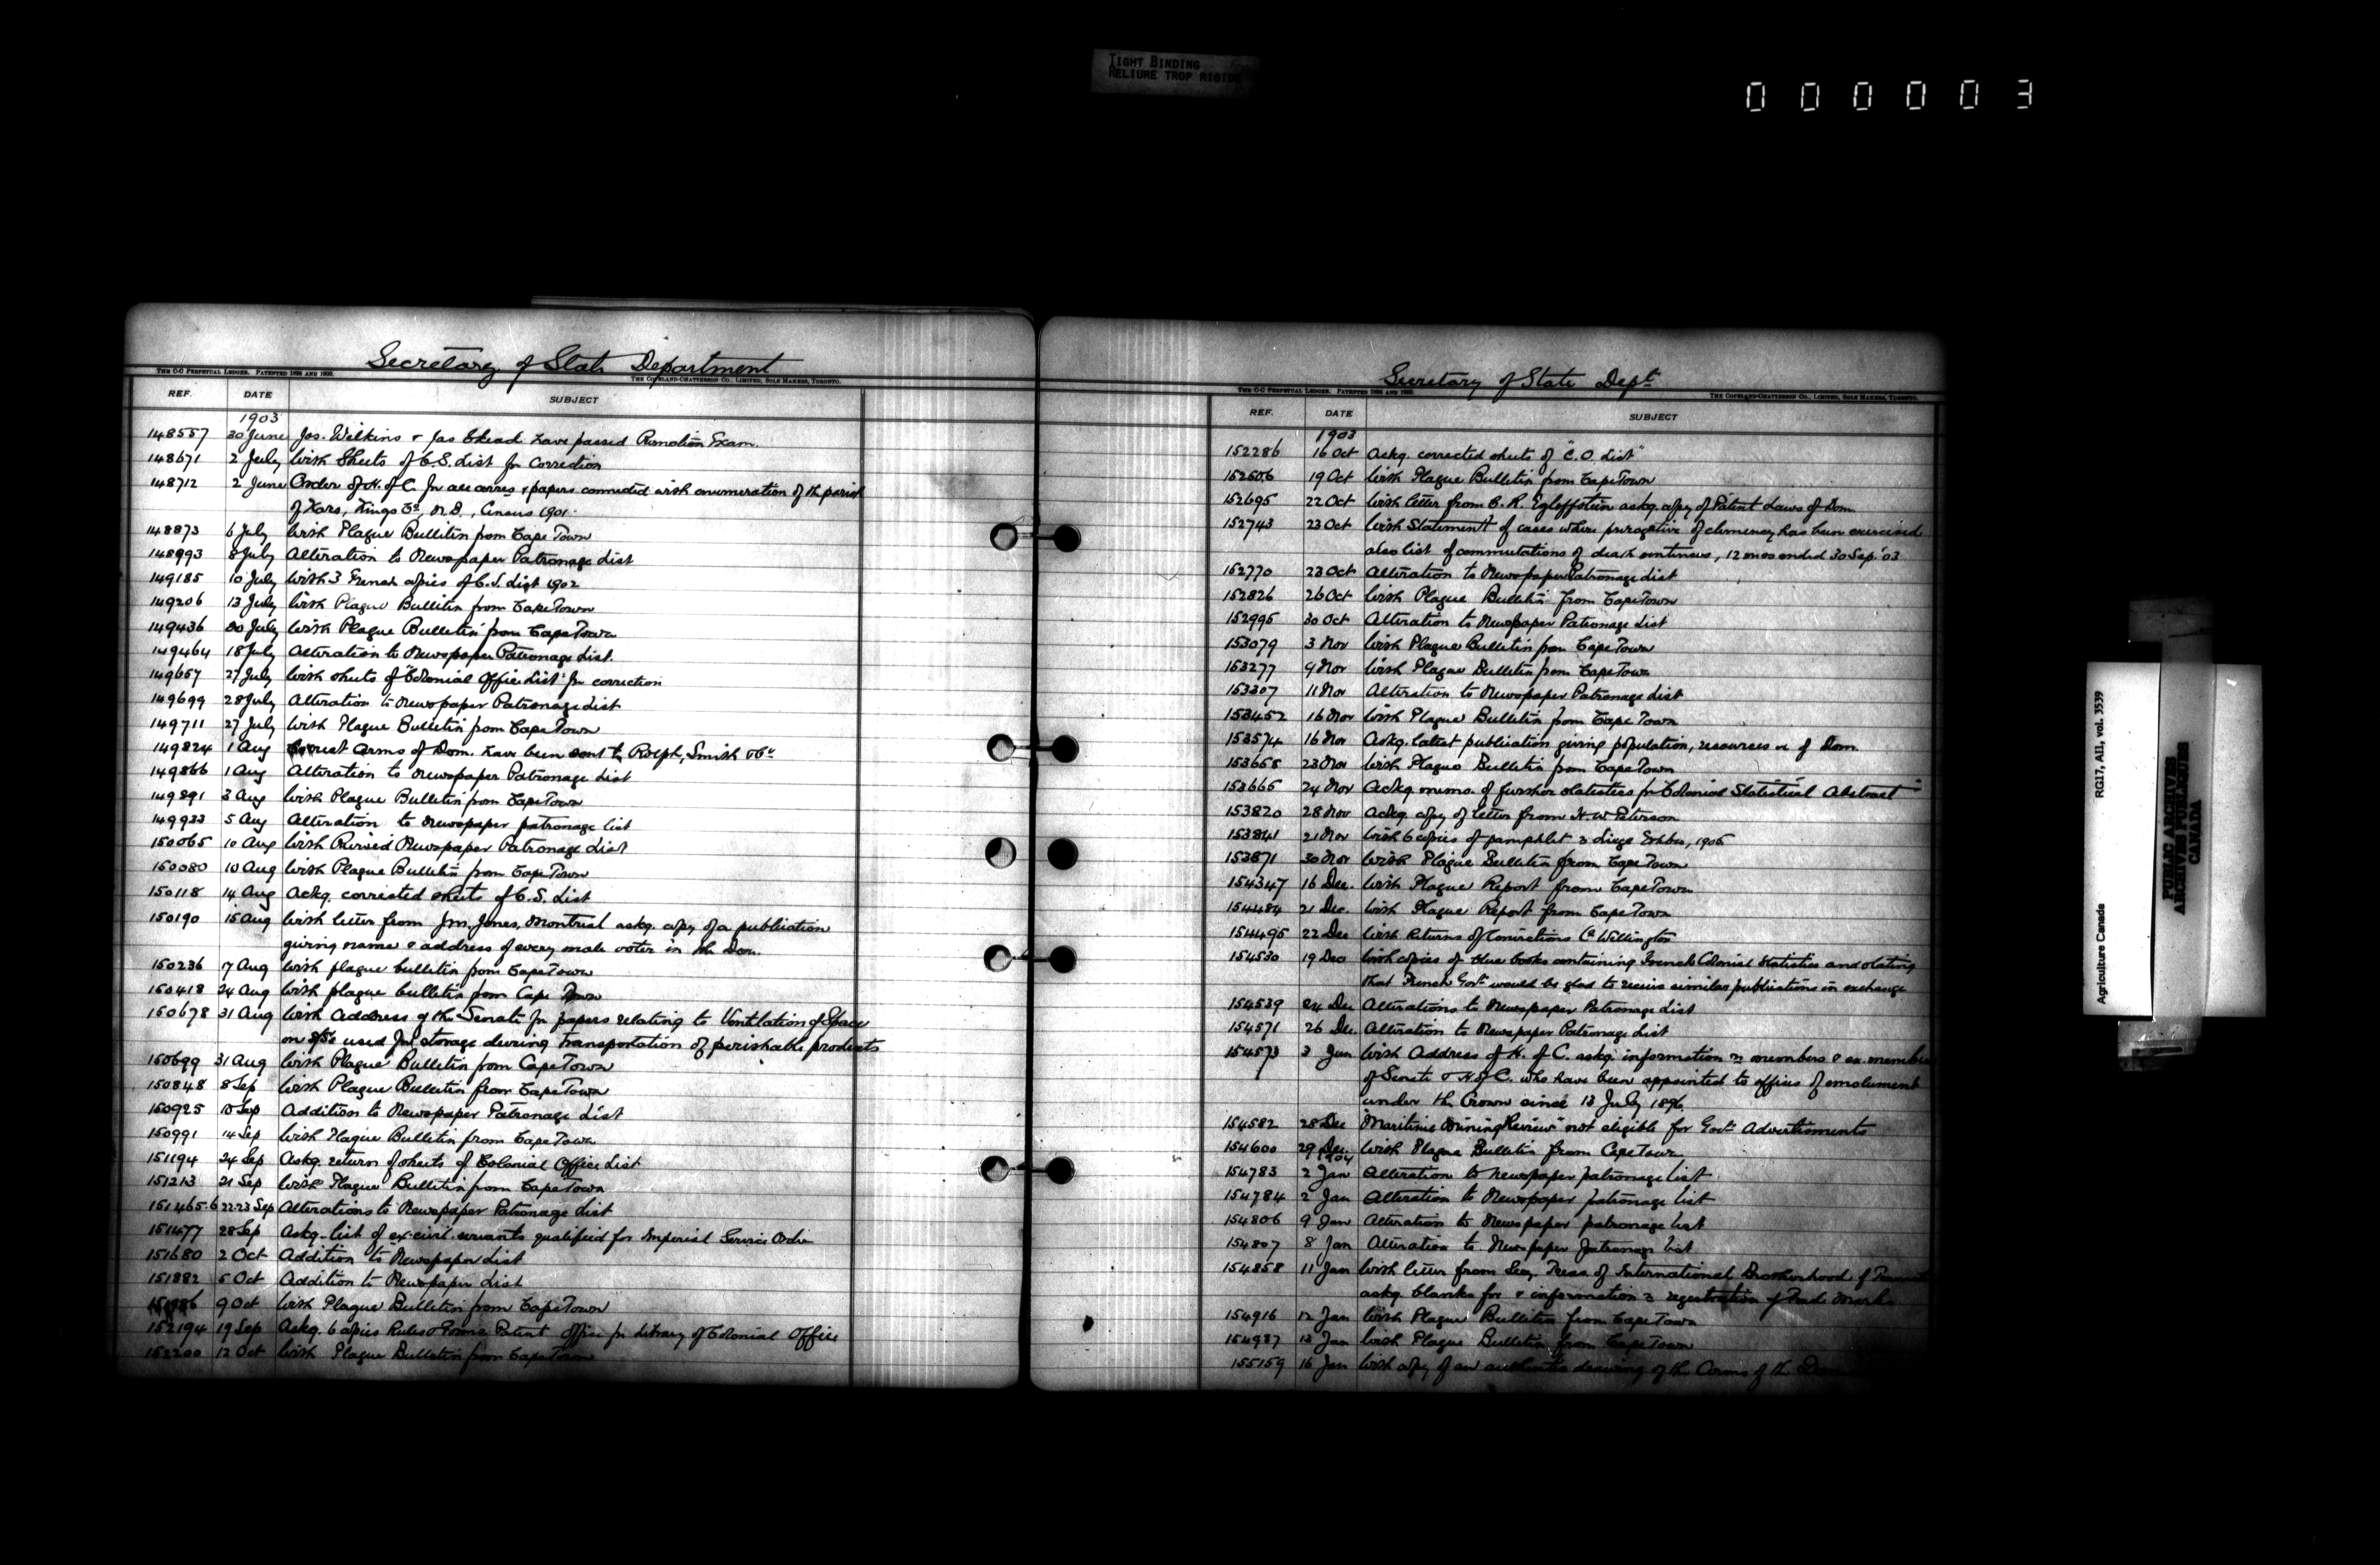 TIGHT BINDING
RELIURE TROP RIGIDE
000003
Secretary of State Department
THE C-C PERPETUAL LEDGER. PATENTED 1896 AND 1900.
THE COPELAND-CHATTERSON CO., LIMITED, SOLE MAKERS, TORONTO.
REF. DATE SUBJECT
1903
148557 30 June Jos. Wilkins & Jas Skead have passed Promotion Exam.
148671 2 July With Sheets of C.S. List for Correction
148712 2 June Order of H. of C. for all corres & papers connected with enumeration of the parish
of Kars, Kings Co, N.B., Census 1901.
148873 6 July With Plague Bulletin from Cape Town
148993 8 July Alteration to Newspaper Patronage List
149185 10 July With 3 French copies of C.S. List 1902
149206 13 July With Plague Bulletin from Cape Town
149436 20 July With Plague Bulletin from Cape Town
149464 18 July Alteration to Newspaper Patronage List.
149657 27 July With sheets of "Colonial Office List" for correction
149699 28 July Alteration to Newspaper Patronage List
149711 27 July With Plague Bulletin from Cape Town
149824 1 Aug Correct Arms of Dom. have been sent to Rolph, Smith & Co
149866 1 Aug Alteration to Newspaper Patronage List
149891 3 Aug With Plague Bulletin from Cape Town
149933 5 Aug Alteration to Newspaper patronage list
150065 10 Aug With Revised Newspaper Patronage List
150080 10 Aug With Plague Bulletin from Cape Town
150118 14 Aug Ackg. corrected sheets of C.S. List
150190 15 Aug With letter from Jones, Montreal askg. copy of a publication
giving name & address of every male voter in the Dom.
150236 17 Aug With plague bulletin from Cape Town
150418 24 Aug With plague bulletin from Cape Town
150678 31 Aug With Address of the Senate for papers relating to Ventilation of Space
on used for storage during transportation of perishable products
150699 31 Aug With Plague Bulletin from Cape Town
150848 8 Sep With Plague Bulletin from Cape Town
150925 10 Sep Addition to Newspaper Patronage List
150991 14 Sep With Plague Bulletin from Cape Town
151194 24 Sep Askg. return of sheets of Colonial Office List
151213 21 Sep With Plague Bulletin from Cape Town
151465-6 22-23 Sep Alterations to Newspaper Patronage List
151477 28 Sep Askg. list of ex-civil servants qualified for Imperial Service Order
151680 2 Oct Addition to Newspaper List
151882 5 Oct Addition to Newspaper List
9 Oct With Plague Bulletin from Cape Town
152194 19 Sep Askg. 6 copies Rules & Forms Patent Office for Library of Colonial Office
152200 12 Oct With Plague Bulletin from Cape Town
Secretary of State Dept
THE C-C PERPETUAL LEDGER. PATENTED 1896 AND 1900.
THE COPELAND-CHATTERSON CO., LIMITED, SOLE MAKERS, TORONTO.
REF. DATE SUBJECT
1903
152286 16 Oct Ackg. corrected sheets of "C.O. List"
152606 19 Oct With Plague Bulletin from Cape Town
152695 22 Oct With letter from C. R. Egloffstein askg. copy of Patent Laws of Dom.
152743 23 Oct With Statement of cases where prerogative of clemency has been exercised
also list of commutations of death sentences, 12 mos ended 30 Sep. '03
152770 23 Oct Alteration to Newspaper Patronage List
152826 26 Oct With Plague Bulletin from Cape Town
152995 30 Oct Alteration to Newspaper Patronage List
153079 3 Nov With Plague Bulletin from Cape Town
153277 9 Nov With Plague Bulletin from Cape Town
153307 11 Nov Alteration to Newspaper Patronage List
153452 16 Nov With Plague Bulletin from Cape Town
153574 16 Nov Askg. latest publication giving population, resources of Dom.
153658 23 Nov With Plague Bulletin from Cape Town
153665 24 Nov Ackg. memo. of further statistics for "Colonial Statistical Abstract"
153820 28 Nov Ackg. copy of letter from H. W. Peterson
153841 21 Nov With 6 copies of pamphlet Liege Exhbn, 1905
153871 30 Nov With Plague Bulletin from Cape Town
154347 16 Dec. With Plague Report from Cape Town
154484 21 Dec. With Plague Report from Cape Town
154495 22 Dec With Returns of Convictions Co Wellington
154530 19 Dec With copies of blue books containing French Colonial Statistics and stating
that French Govt would be glad to receive similar publications in exchange
154539 24 Dec Alterations to Newspaper Patronage List
154571 26 Dec. Alteration to Newspaper Patronage List
154573 3 Jun With Address of H. of C. askg. information re members & ex-members
of Senate & H. of C. who have been appointed to offices of emolument
under the Crown since 13 July 1896
154582 28 Dec "Maritime Mining Review" not eligible for Govt Advertisments
154600 29 Dec. With Plague Bulletin from Cape Town
1904
154783 2 Jan Alteration to newspaper patronage list
154784 2 Jan Alteration to Newspaper patronage list
154806 9 Jan Alteration to Newspaper patronage list
154807 8 Jan Alteration to Newspaper patronage list
154858 11 Jan With letter from Secy. Treas. of International Brotherhood of
askg. blanks for & information re registration of Trade Marks
154916 12 Jan With Plague Bulletin from Cape Town
154937 13 Jan With Plague Bulletin from Cape Town
155159 16 Jan With copy of an authentic drawing of the Arms of the
Agriculture Canada RG17, AII, vol. 3539
PUBLIC ARCHIVES
ARCHIVES PUBLIQUES
CANADA